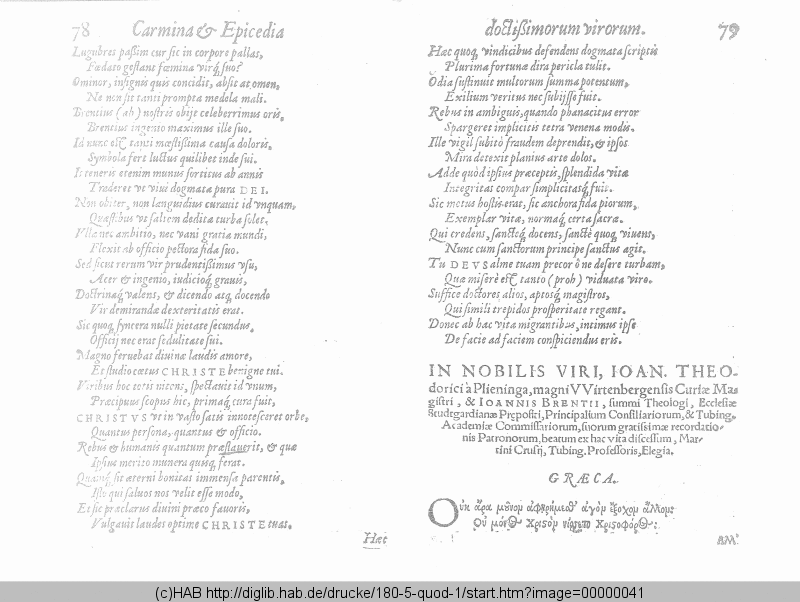 78 Carmina & Epicedia
Lugubres passim cur sic in corpore pallas,
Fœdato gestant fœmina virq́ suo?
Ominor, insignis quis concidit, absit at omen,
Ne non sit tanti prompta medela mali.
Brentius (ah) nostris obijt celeberrimus oris,
Brentius ingenio maximus ille suo.
Id nunc est tanti mœstissima causa doloris,
Symbola fert luctus quilibet inde sui.
Is teneris etenim munus sortitus ab annis
Traderet vt viui dogmata pura DEI.
Non obiter, non languidius curauit id vnquam,
Quæstibus vt saltem dedita turba solet.
Vlla nec ambitio, nec vani gratia mundi,
Flexit ab officio pectora fida suo.
Sed sicut rerum vir prudentissimus vsu,
Acer & ingenio, iudicioq́ grauis,
Doctrinaq́ valens, & dicendo atq́ docendo
Vir demiranda dexteritatis erat.
Sic quoq́ syncera nulli pietate secundus,
Officij nec erat sedulitate sui.
Magno feruebat diuinæ laudis amore,
Et studio cœtus CHRISTE benigne tui.
Viribus hoc totis nitens, spectauit id vnum,
Præcipuus scopus hic, primaq́ cura fuit,
CHRISTVS vt in vasto satis innotesceret orbe,
Quantus persona, quantus & officio.
Rebus & humanis quantum præstauerit, & quæ
Ipsius merito munera quisq́ ferat.
Quamq́ sit æterni bonitas immensa parentis,
Isto qui saluos nos velit esse modo,
Et sic præclarus diuini præco fauoris,
Vulgauit laudes optime CHRISTE tuas.
Hæc
doctissimorum virorum. 79
Hæc quoq́ vindicibus defendens dogmata scriptis
Plurima fortunæ dira pericla tulit.
Odia sustinuit multorum summa potentum,
Exilium veritus nec subijsse fuit.
Rebus in ambiguis, quando phanaticus error
Spargeret implicitis tetra venena modis.
Ille vigil subitò fraudem deprendit, & ipsos
Mira detexit planius arte dolos.
Adde quòd ipsius præceptis, splendida vita
Integritas compar simplicitasq́ fuit.
Sic metus hostis erat, sic anchora fida piorum,
Exemplar vitæ, normaq́ certa sacræ.
Qui credens, sanctèq́ docens, sanctè quoq́ viuens,
Nunc cum sanctorum principe sanctus agit.
Tu DEVS alme tuam precor ô ne desere turbam,
Quæ miserè est tanto (proh) viduata viro.
Suffice doctores alios, aptosq́ magistros,
Qui simili trepidos prosperitate regant.
Donec ab hac vita migrantibus, intimus ipse
De facie ad faciem conspiciendus eris.
IN NOBILIS VIRI, IOAN. THEO-
dorici à Plieninga, magni VVirtenbergensis Curiæ Ma-
gistri, & IOANNIS BRENTII, summi Theologi, Ecclesiæ
Studtgardianæ Præpositi, Principalium Consiliariorum, & Tubing.
Academiæ Commissariorum, suorum gratissimæ recordatio-
nis Patronorum, beatum ex hac vita discessum, Mar-
tini Crusij, Tubing. Professoris, Elegia.
GRÆCA.